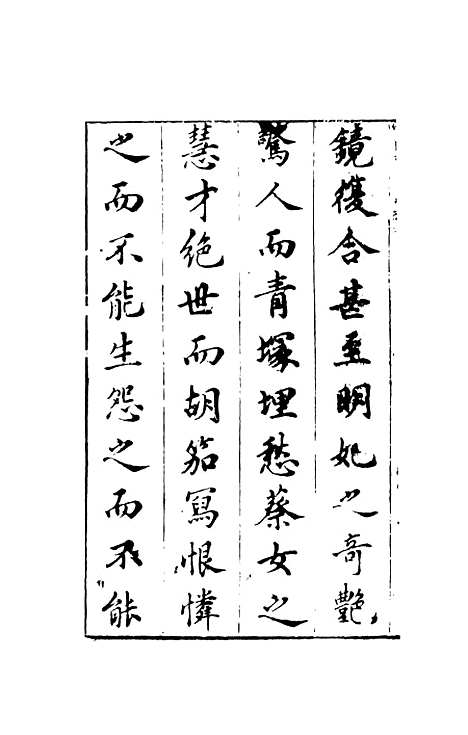 鏡復合甚至明妃之奇艷
驚人而青塚埋愁蔡女之
慧才絕世而胡笳寫恨憐
之而不能生怨之而不能